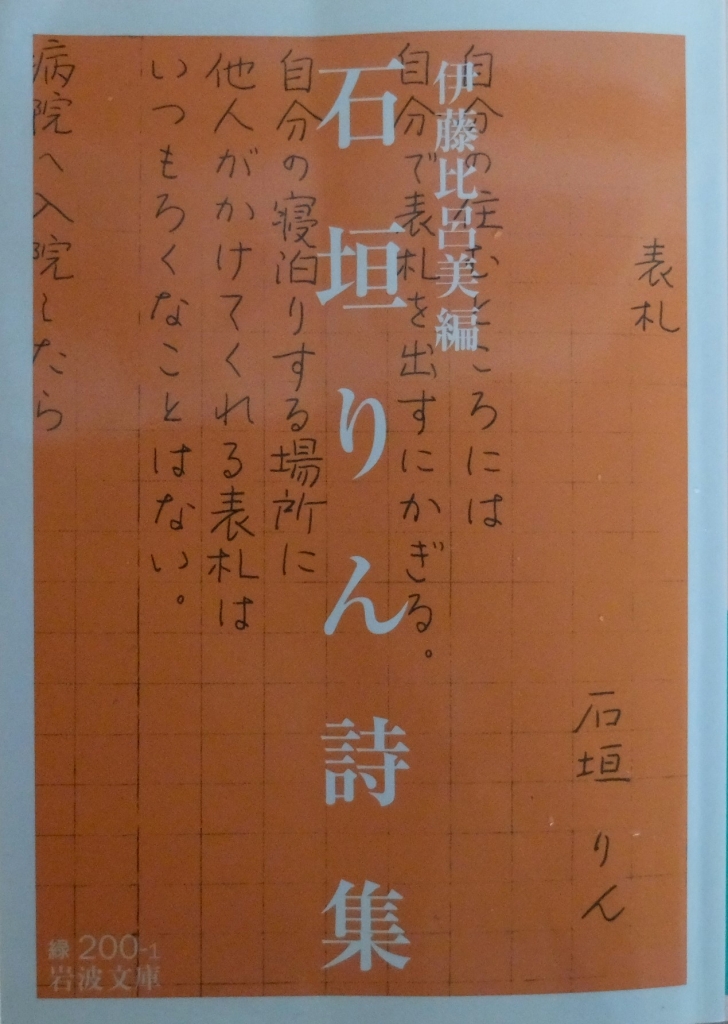 表札
石垣りん
自分の住むところには
自分で表札を出すにかぎる。
自分の寝泊りする場所に
他人がかけてくれる表札は
いつもろくなことはない。
病院へ入院したら
伊藤比呂美編
石垣りん詩集
緑 200-1
岩波文庫